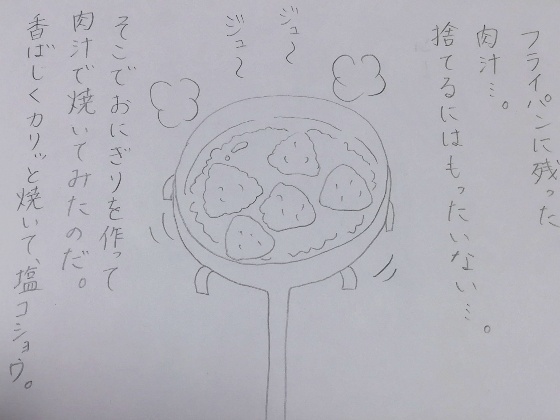 フライパンに残った
肉汁…。
捨てるにはもったいない…。
ジュ〜
ジュ〜
そこでおにぎりを作って
肉汁で焼いてみたのだ。
香ばしくカリッと焼いて、塩コショウ。